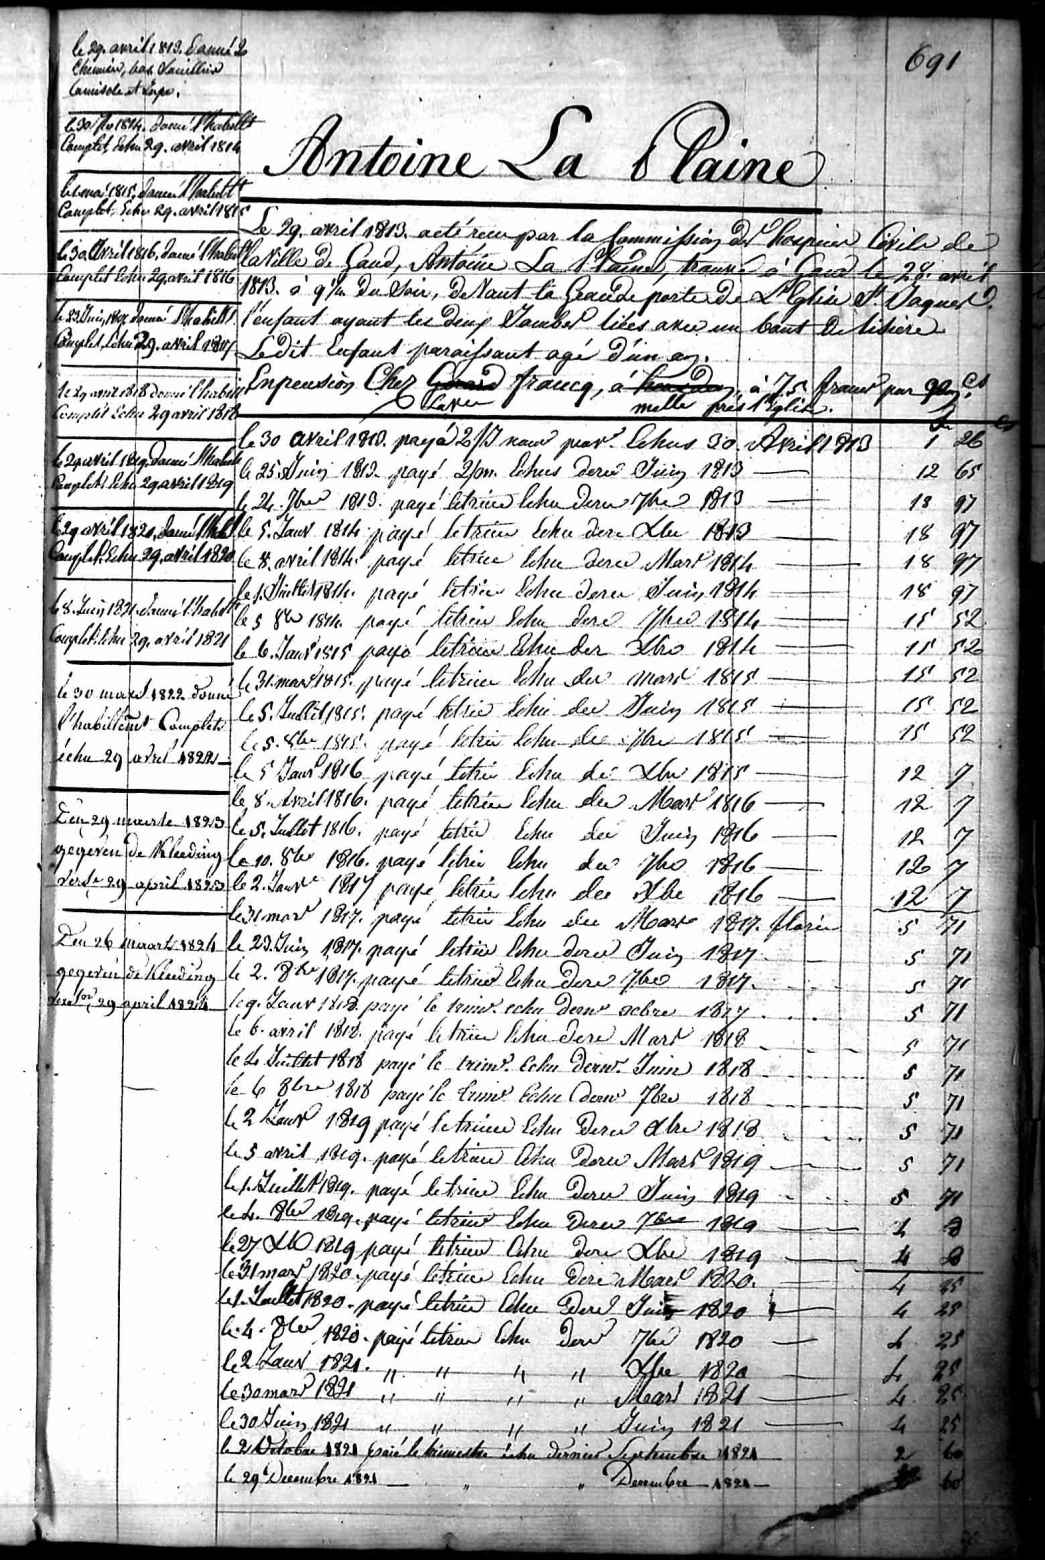 691
le 29. avril 1813. donné 2
Chemises, bas
Camisole et Jupe.
le 30 1814. donné l'habillt
Complet, Echu 29. avril 1814
1815. donné l'habillt
Complet, Echu 29. avril 1815
le 30 Avril 1816, donné l'habillt
Complet Echu 29 avril 1816
le 23 Juin, 1817 donné l'habillt
Complet, Echu 29. avril 1817
le 29 avril 1818 donné l'habillt
Complet Echu 29 avril 1818
le 29 avril 1819, donné l'habillt
Complet Echu 29 avril 1819
le 29 avril 1820, donné l'habillt
Complet. Echu 29. avril 1820
le 8. Juin 1821. donné l'habillt
Complet. Echu 29. avril 1821
le 30 mars 1822 donné
l'habillemt Complet
échu 29 avril 1822
Den 29 maerte 1823
gegeven de Kleeding
29 april 1823
Den 26 maarts 1824
gegeven de Kleeding
29 april 1824
Antoine La Plaine
Le 29. avril 1813. a été reçu par la Commission des hospices Civils de
la Ville de Gand, Antoine La Plaine, trouvé à Gand le 28. avril
1813. à 9½ du Soir, devant la Grande porte de L'Eglise St Jaques.
l'enfant ayant les deux Jambes liées avec un bout de lisière
Ledit Enfant paraissant agé d'un an.
En pension Chez francq, à à 75 francs par
melle près l'Eglise.
le 30 avril 1813. payé 2/J Echus 30. Avril 1813 1 26
le 25. Juin 1813. payé 2/m Echus dern Juin 1813 12 65
le 24. 7bre 1813. payé letrim Echu dern 7bre 1813 18 97
le 5. Janv 1814. payé letrim Echu dern Xbre 1813 18 97
le 8. avril 1814. payé letrim Echu dern Mars 1814 18 97
le 1. Juillet 1814. payé letrim Echu dern Juin 1814 18 97
le 5 8bre 1814 payé letrim Echu dern 7bre 1814 15 52
le 6. Janv 1815 payé letrim Echu der Xbre 1814 15 52
le 31 mars 1815. payé letrim Echu der mars 1815 15 52
le 5. Juillet 1815. payé letrim Echu der Juin 1815 15 52
le 5. 8bre 1815. payé letrim Echu der 7bre 1815 15 52
le 5 Janv 1816 payé letrim Echu de Xbre 1815 12 7
le 8. Avril 1816. payé letrim Echu der Mars 1816 12 7
le 5. Juillet 1816. payé letrim Echu der Juin 1816 12 7
le 10. 8bre 1816. payé letrim Echu der 7bre 1816 12 7
le 2. Janv 1817 payé letrim Echu der Xbre 1816 12 7
le 31 mars 1817. payé letrim Echu der Mars 1817. florin 5 71
le 23. Juin 1817. payé letrim Echu dern Juin 1817 5 71
le 2. 8bre 1817. payé letrim Echu dern 7bre 1817. 5 71
le 9. Janv 1818. payé le trim. echu dernr xcbre 1817 5 71
le 6. avril 1818. payé letrim Echu dern Mars 1818 5 71
le 4 Juillet 1818 payé le trimr. Echu dernr. Juin 1818 5 71
le 6 8bre 1818 payé le trimr Echu dernr 7bre 1818 5 71
le 2 Janv 1819 payé letrim Echu dern Xbre 1818 5 71
le 5 avril 1819. payé letrim Echu dern Mars 1819 5 71
le 1. Juillet 1819. payé letrim Echu dern Juin 1819 5 71
le 4. 8bre 1819. payé letrim Echu dern 7bre 1819 4 8
le 27 Xbre 1819 payé letrim Echu dern Xbre 1819 4 8
le 31 mars 1820. payé letrim Echu dern Mars 1820. 4 25
le 1. Juillet 1820. payé letrim Echu dern Juin 1820 4 25
le 4. 8bre 1820. payé letrim Echu dern 7bre 1820 4 25
le 2 Janv 1821. " " " " Xbre 1820 4 25
le 30 mars 1821 " " " " Mars 1821 4 25
le 30 Juin 1821 " " " " Juin 1821 4 25
le 2 Octobre 1821 payé le trimestre échu dernier Septembre 1821 2 60
le 29 Decembre 1821 " " Decembre 1821 60